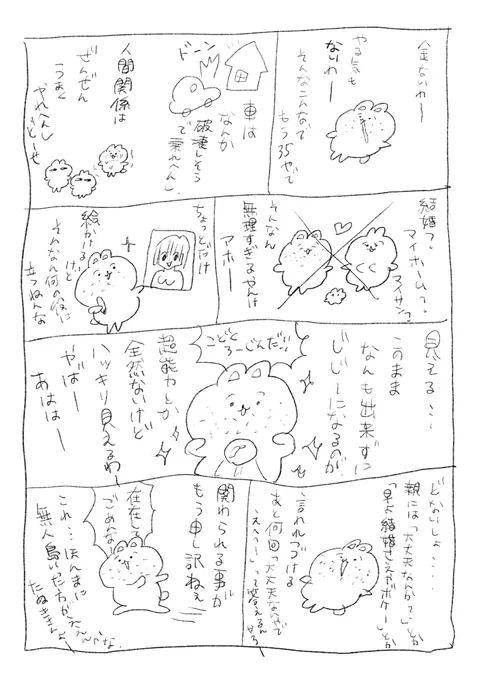 金ないわー
やる気も
ないわー
そんなこんなで
もう35やで
車は
なんか
破壊しそう
で乗れへん
ドーン
人間関係は
ぜんぜん
うまく
やれへんし
どーせ
結婚?
マイホーム?
マイサン?
そんなん
無理すぎるやんけ
アホー
ちょっとだけ
絵かけるけど
そんなん何の役に
立つねんな
見える…
このまま
なんも出来ずに
じじーになるのが
こどく
ろーじんだ!!
超能力とか
全然ないけど
ハッキリ見えるわー
やばー
あはは
どないしよ….
親には「大丈夫なんか?」とか
「早よ結婚せえやボケー」とか
言われつづける
あと何回「大丈夫なんやで
え へ へ ー」って答えるん
やろ
関わられる事が
もう申し訳ねぇ
存在して
ごめんな
これ…ほんまに
無人島いった方がええんやな、
たぬきさんよ